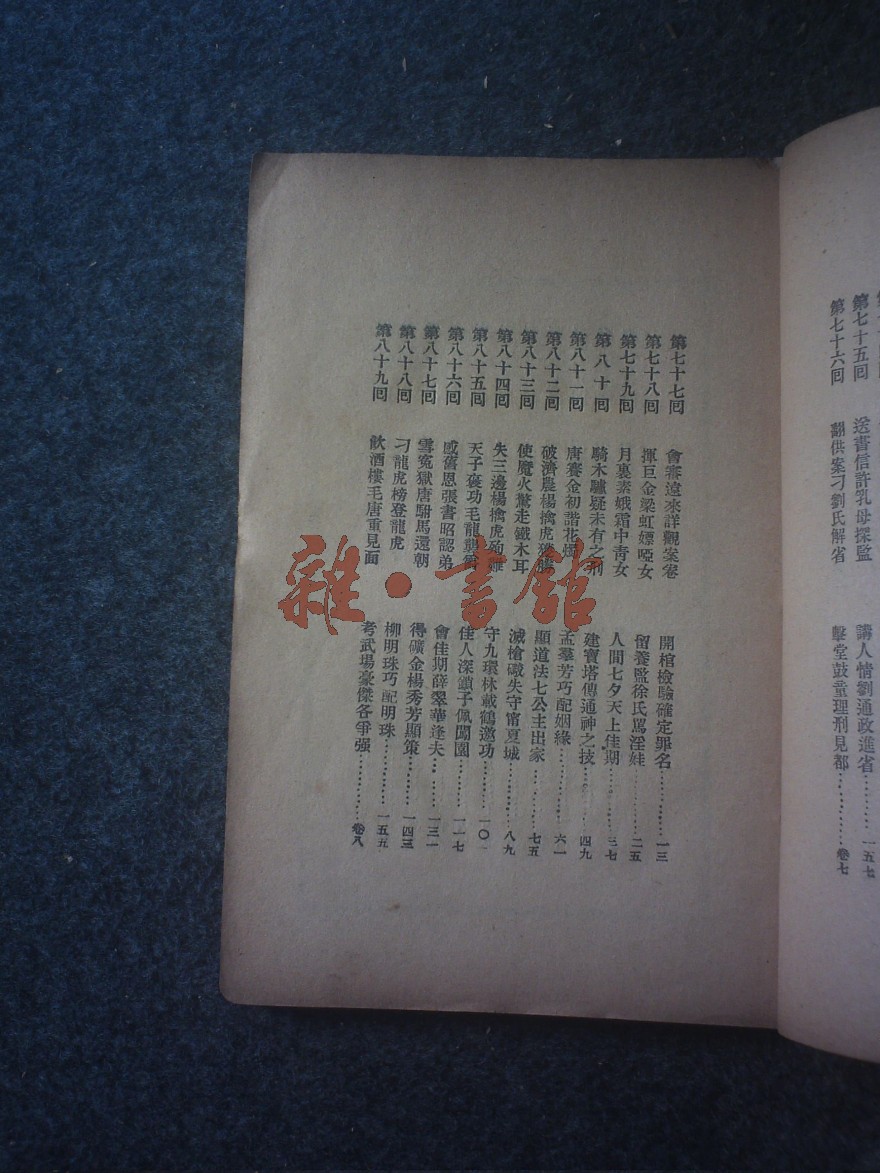 第七十五回 送書信許乳母探監 講人情劉通政進省…………一五七
第七十六回 翻供案刁劉氏解省 擊堂鼓童理刑見都…………卷七
第七十七回 會審遠來詳觀案卷 開棺檢驗確定罪名…………一三
第七十八回 揮巨金梁虹嫖啞女 留養監徐氏罵淫娃…………二五
第七十九回 月裏素娥霜中青女 人間七夕天上佳期…………三七
第八十回 騎木驢疑未有之刑 建寶塔傳通神之技…………四九
第八十一回 唐賽金初諧花燭 孟羣芳巧配姻緣…………六一
第八十二回 破濟農楊擒虎 顯道法七公主出家…………七五
第八十三回 使魔火驚走鐵木耳 滅槍礮失守甯夏城…………八九
第八十四回 失三邊楊擒虎殉難 守九環林載鶴邀功…………一〇一
第八十五回 天子褒功毛龍襲爵 佳人深鎖子佩闖園…………一一七
第八十六回 感舊恩張書昭認弟 會佳期薛翠華逢夫…………一三一
第八十七回 雪寃獄唐駙馬還朝 得礦金楊秀芳顯策…………一四三
第八十八回 刁龍虎榜登龍虎 柳明珠巧配明珠…………一五五
第八十九回 飲酒樓毛唐重見面 考武場豪傑各爭强…………卷八
雜·書館